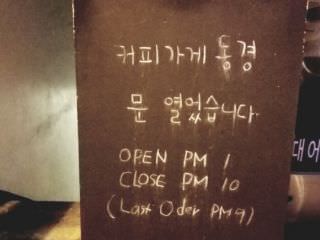 커피가게 동경
문 열었습니다.
OPEN PM 1
CLOSE PM 10
(Last Oder PM 9)
대 어